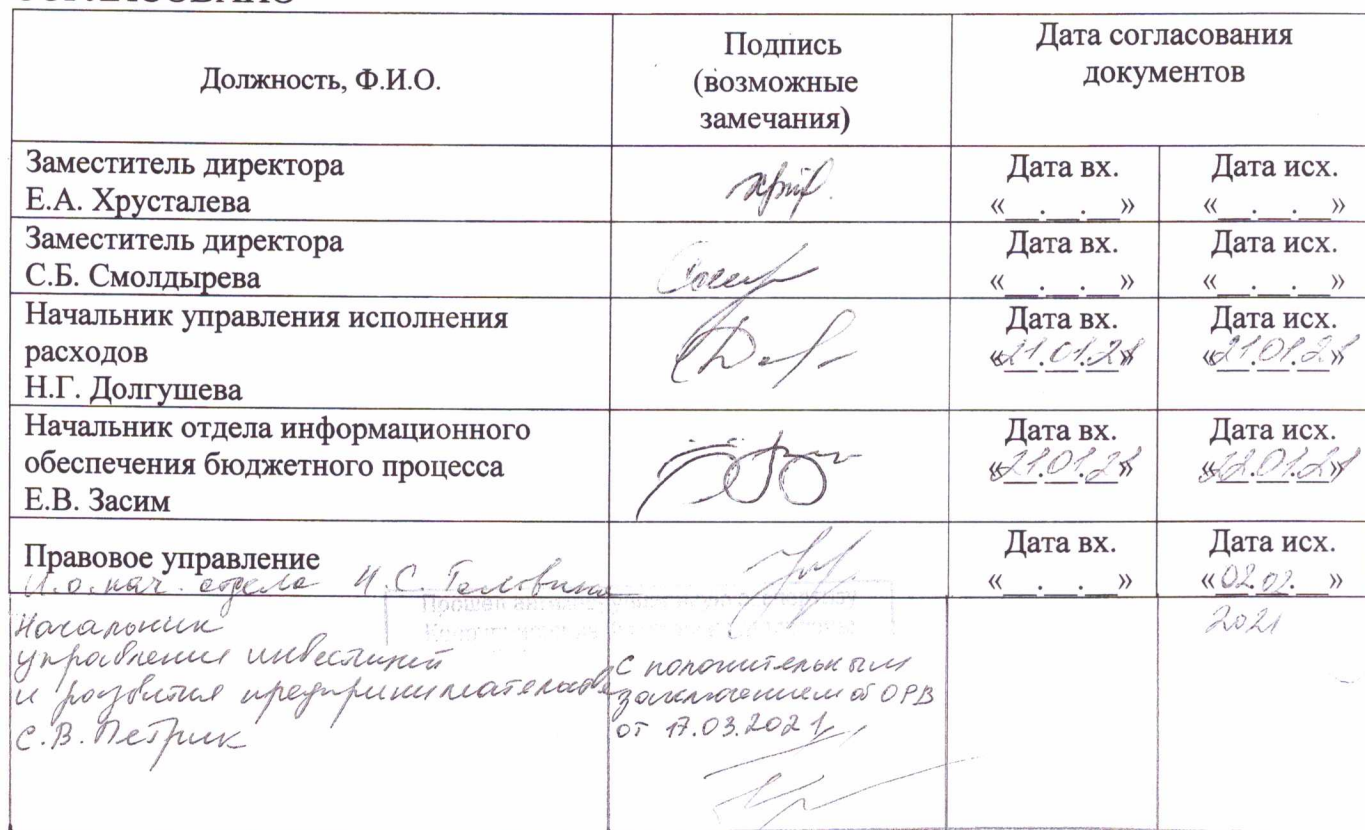 СОГЛАСОВАНО
Должность, Ф.И.О.
Подпись
(возможные
замечания)
Дата согласования
документов
Заместитель директора
Е.А. Хрусталева
Дата вх.
«__.__.__»
Дата исх.
«__.__.__»
Заместитель директора
С.Б. Смолдырева
Дата вх.
«__.__.__»
Дата исх.
«__.__.__»
Начальник управления исполнения
расходов
Н.Г. Долгушева
Дата вх.
«21.01.21»
Дата исх.
«21.01.21»
Начальник отдела информационного
обеспечения бюджетного процесса
Е.В. Засим
Дата вх.
«21.01.21»
Дата исх.
«22.01.21»
Правовое управление
И.о. нач. отдела И.С.
Дата вх.
«__.__.__»
Дата исх.
«02.02.__»
2021
Начальник
управления инвестиций
и развития предпринимательства
С.В. Петрик
с положительным
заключением об ОРВ
от 17.03.2021